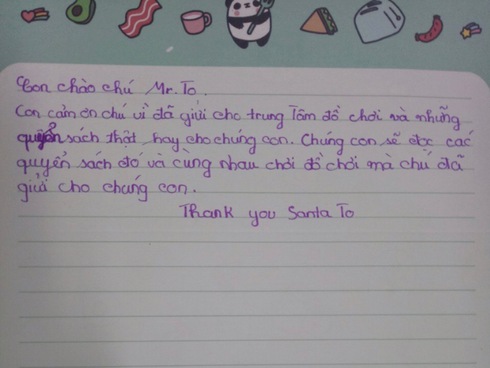 Con chào chú Mr. To.
Con cảm ơn chú vì đã giửi cho trung Tâm đồ chơi và những
quyển sách thật hay cho chúng con. Chúng con sẽ đọc các
quyển sách đó và cùng nhau chơi đồ chơi mà chú đã
giửi cho chúng con.
Thank you Santa To